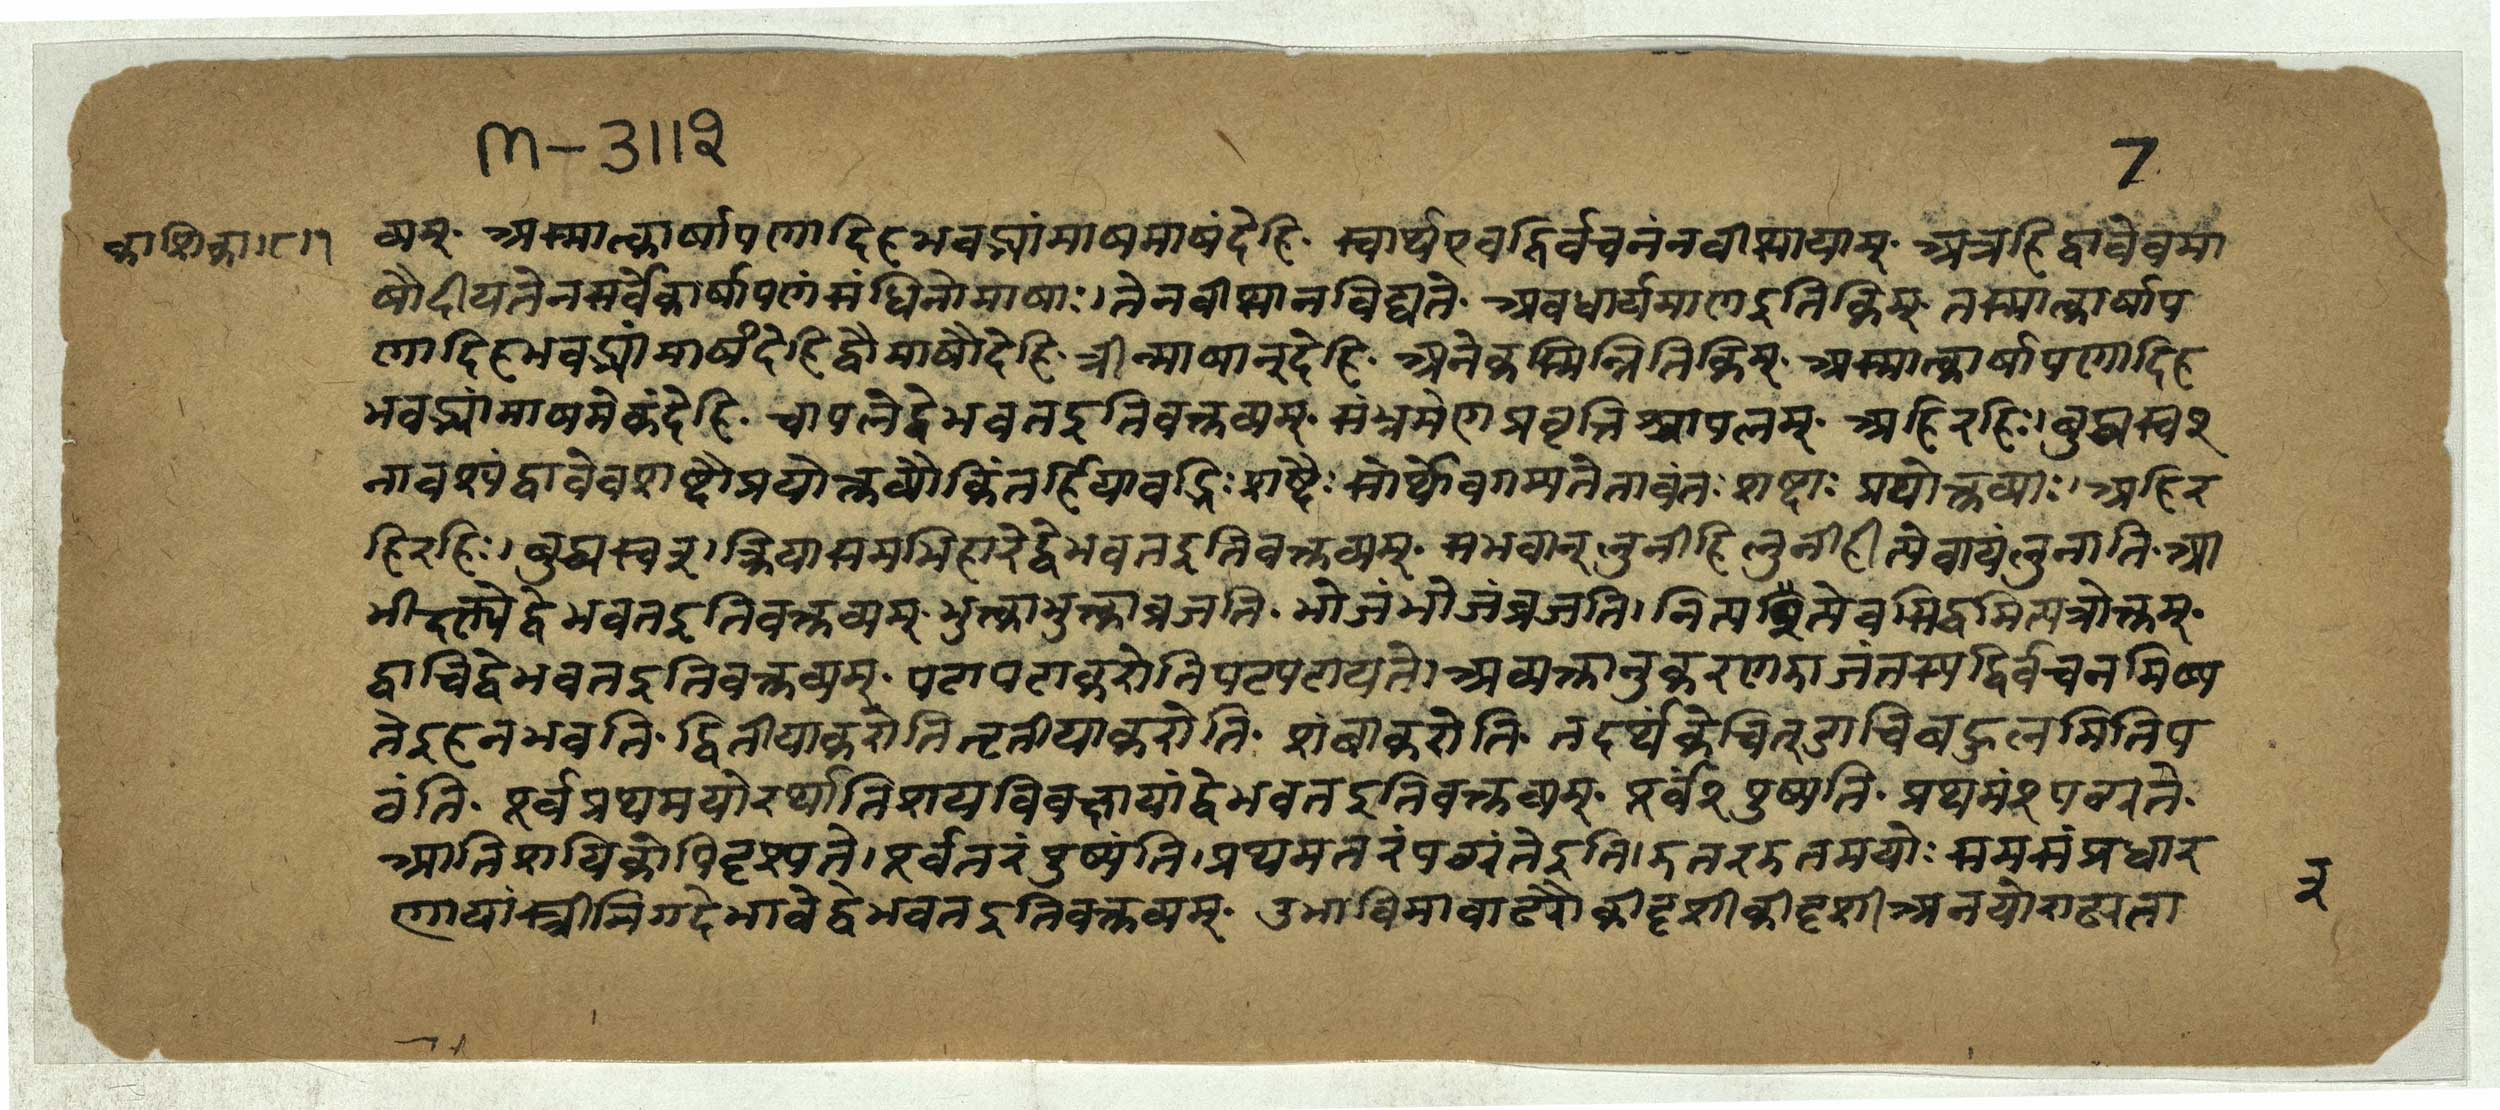 M-3112
7
काशिका।८।१
व्यम्· अस्मात्कार्षापणादिहभवद्भ्यांमाषमाषंदेहि· स्वार्थएवद्विर्वचनंनवीप्सायाम्· अत्रहिद्वावेवमा
षौदीयतेनसर्वेकार्षापणसंबंधिनोमाषाः।तेनवीप्सानविद्यते· अवधार्यमाणइतिकिम्· तस्मात्कार्षाप
णादिहभवद्भ्यांमाषंदेहिद्वौमाषौदेहि· त्रीन्माषान्देहि· अनेकस्मिन्नितिकिम्· अस्मात्कार्षापणादिह
भवद्भ्यांमाषमेकंदेहि· चापलेद्वेभवतइतिवक्तव्यम्· संभ्रमेणप्रवृत्तिश्चापलम्· अहिरहिः।बुद्ध्यस्व२
नावश्यंद्वावेवशब्दौप्रयोक्तव्यौकिंतर्हियावद्भिःशब्दैःसोर्थोवगम्यतेतावंतःशब्दाःप्रयोक्तव्याः।अहिर
हिरहिः।बुद्ध्यस्व३।क्रियासमभिहारेद्वेभवतइतिवक्तव्यम्· सभवान्लुनीहिलुनीहीत्येवायंलुनाति·आ
भीक्ष्ण्येद्वेभवतइतिवक्तव्यम्·भुक्त्वाभुक्त्वाव्रजति· भोजंभोजंव्रजति।नित्यइत्येवसिद्धमित्यत्रोक्तम्·
डाचिद्वेभवतइतिवक्तव्यम्· पटपटाकरोतिपटपटायते।अव्यक्तानुकरणेडाजंतस्यद्विर्वचनमिष्य
तेइहनभवति· द्वितीयाकरोतितृतीयाकरोति· शंबाकरोति· तदर्थंकेचित्डाचिबहुलमितिप
ठंति· पूर्वप्रथमयोरर्थातिशयविवक्षायांद्वेभवतइतिवक्तव्यम्· पूर्वं२पुष्यति· प्रथमं२पच्यते·
आतिशायिकोपिदृश्यते।पूर्वतरंपुष्यंति।प्रथमतरंपच्यंतेइति।डतरडतमयोः समसंप्रधार
णायांस्त्रीनिगदेभावेद्वेभवतइतिवक्तव्यम्· उभाविमावाढ्यौकीदृशीकीदृशीअनयोराढ्यता
३